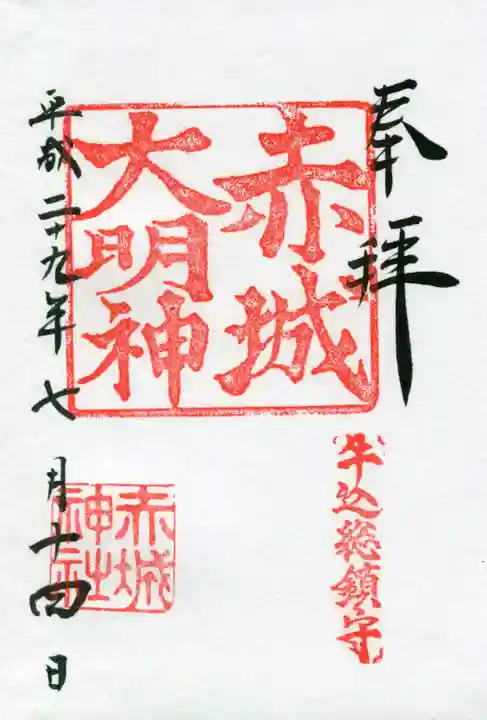 奉拝
牛込総鎮守
赤城
大明神
赤城
神社
平成二十九年七月十四日